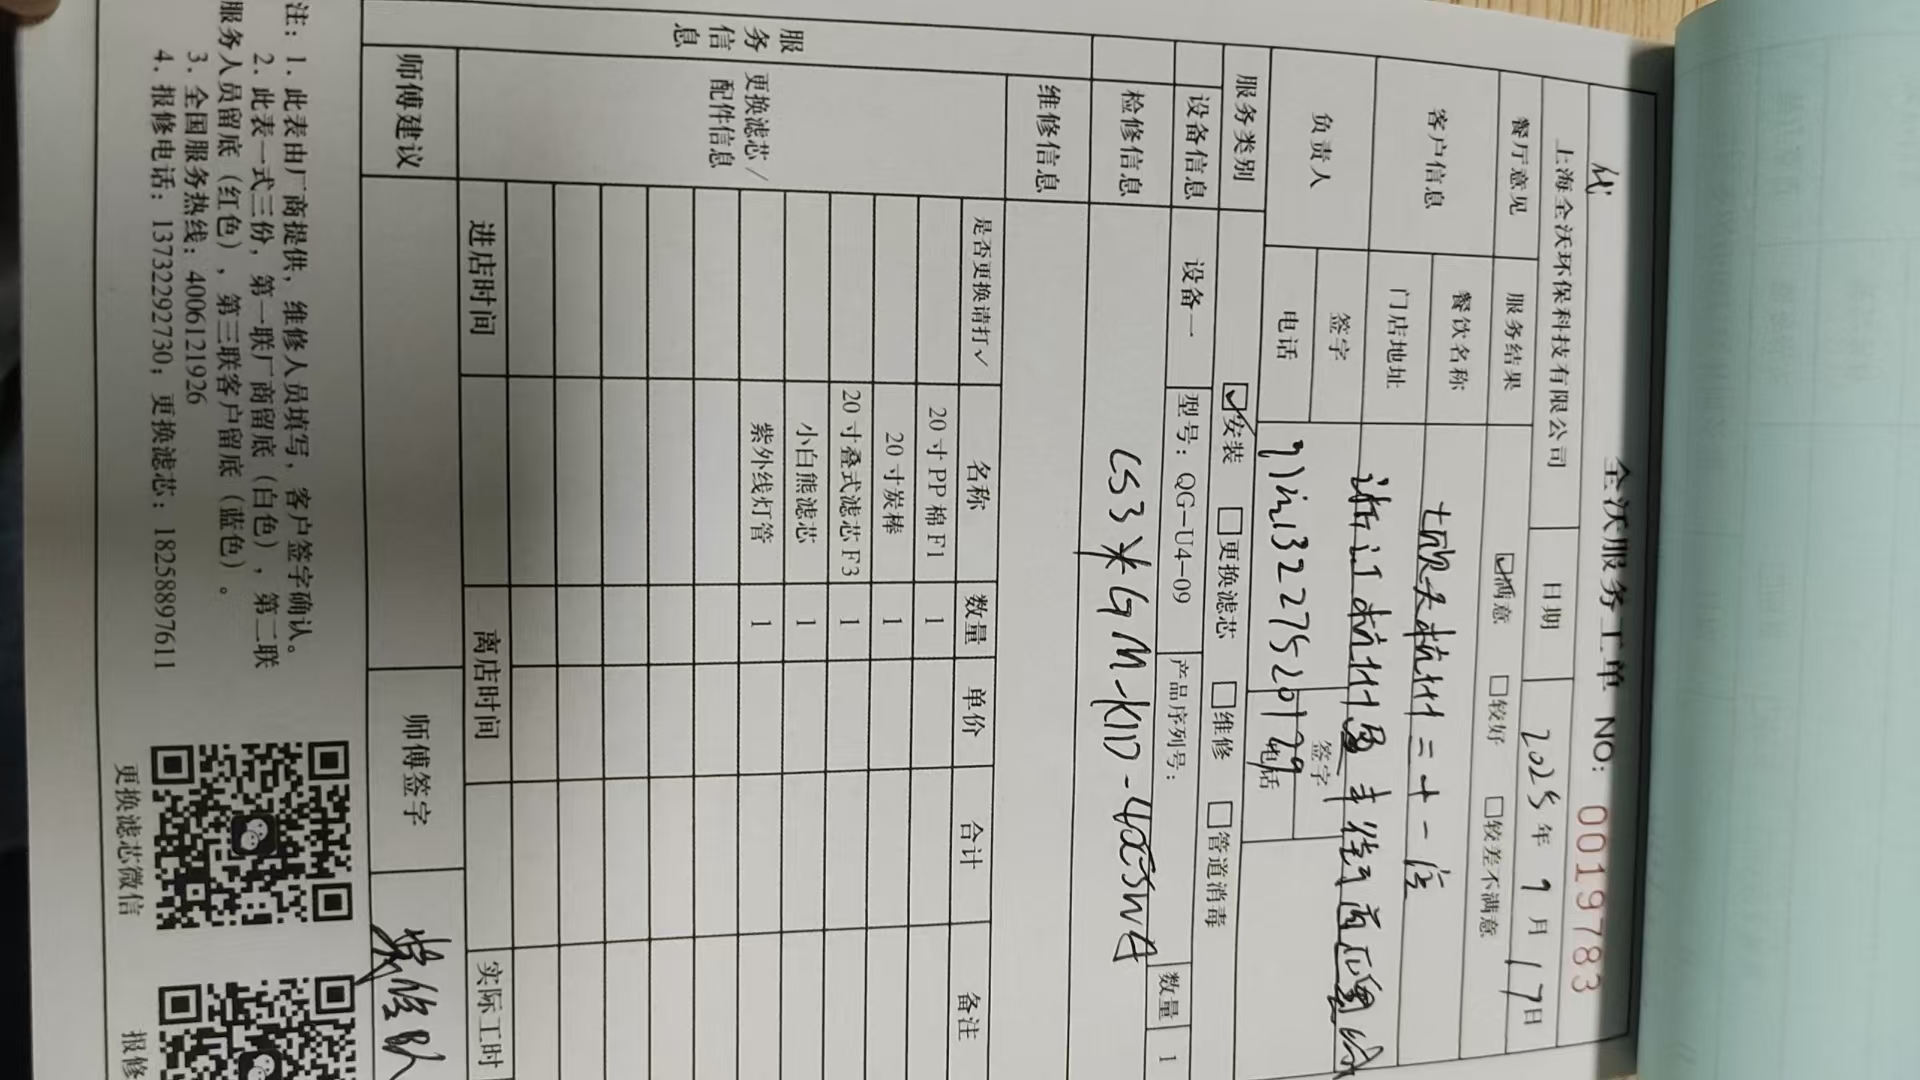 全沃服务工单 NO: 00197783
代
上海全沃环保科技有限公司 日期 2025年9月17日
餐厅意见 服务结果 ☑满意 □较好 □较差不满意
客户信息 餐饮名称 杭州二十一店
门店地址 浙江杭州
负责人 签字 签字
电话 13227520179 电话
服务类别 ☑安装 □更换滤芯 □维修 □管道消毒
设备信息 设备一 型号：QG-U4-09 产品序列号： 数量 1
检修信息
维修信息
服务信息
更换滤芯/配件信息
是否更换请打✓ 名称 数量 单价 合计 备注
20寸PP棉F1 1
20寸炭棒 1
20寸叠式滤芯F3 1
小白熊滤芯 1
紫外线灯管 1
进店时间 离店时间 实际工时
师傅建议 师傅签字
注：1. 此表由厂商提供，维修人员填写，客户签字确认。
2. 此表一式三份，第一联厂商留底（白色），第二联
服务人员留底（红色），第三联客户留底（蓝色）。
3. 全国服务热线：4006121926
4. 报修电话：13732292730；更换滤芯：18258897611
更换滤芯微信
报修